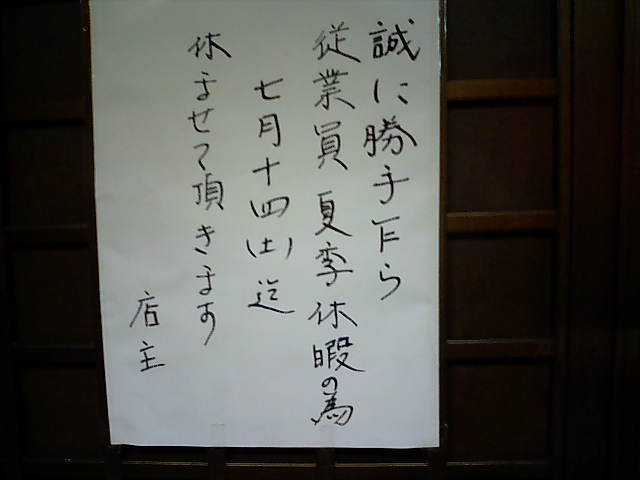 誠に勝手乍ら
従業員夏季休暇の為
七月十四(土)迄
休ませて頂きます
店主